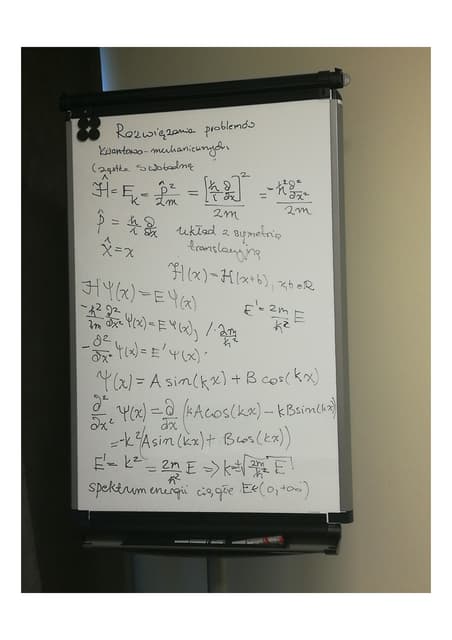 Rozwiązania problemów
kwantowo-mechanicznych
Cząstka swobodna
Ĥ = E_k = p̂²/2m = [ħ/i ∂/∂x]²/2m = -ħ² ∂²/∂x² / 2m
p̂ = ħ/i ∂/∂x układ z symetrią
x̂ = x translacyjną
H(x) = H(x+b), x,b∈R
HΨ(x) = EΨ(x) E' = 2m/ħ² E
-ħ²/2m ∂²/∂x² Ψ(x) = EΨ(x) / · 2m/ħ²
-∂²/∂x² Ψ(x) = E'Ψ(x)
Ψ(x) = A sin(kx) + B cos(kx)
∂²/∂x² Ψ(x) = ∂/∂x (kA cos(kx) - kB sin(kx))
= -k²(A sin(kx) + B cos(kx))
E' = k² = 2m/ħ² E ⇒ k = ±√(2m/ħ² E)
spektrum energii ciągłe E∈(0, +∞)